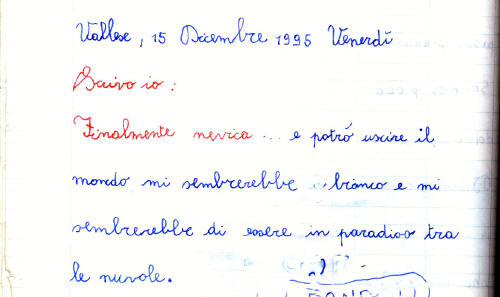 Vallese, 15 Dicembre 1995 Venerdí
Scrivo io:
Finalmente nevica ... e potró uscire il
mondo mi sembrerebbe bianco e mi
sembrerebbe di essere in paradiso tra
le nuvole.